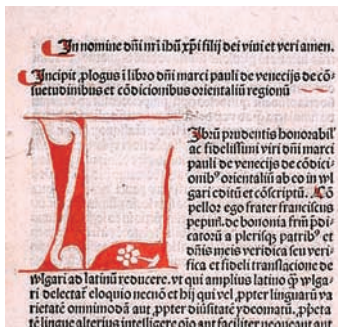 In nomine dñi nři ihũ xp̃i filij dei viui et veri amen.
Incipit ,plogus ĩ libro dñi marci pauli de venecijs de cõ-
suetudinibus et cõdicionibus orientaliũ regionũ
Librũ prudentis honorabił
ac fidelissimi viri dñi marci
pauli de venecijs de cõdici-
onibꝰ orientaliũ ab eo in vul
gari editũ et cõscriptũ. Cõ
pellor ego frater franciscus
pepuri. de bononia frm̃ p̃di-
catorũ a plerisqꝫ patribꝰ et
dñis meis veridica seu veri-
fica et fideli translacione de
wlgari ad latinũ reducere. vt qui amplius latino qꝫ wlga-
ri delectãt eloquio necnõ et hij qui vel ,ppter linguarũ va
rietatẽ omnimodã aut ,ppter diũsitatẽ ydeomatũ. ,p̱peta
te lingue alterius intelligere